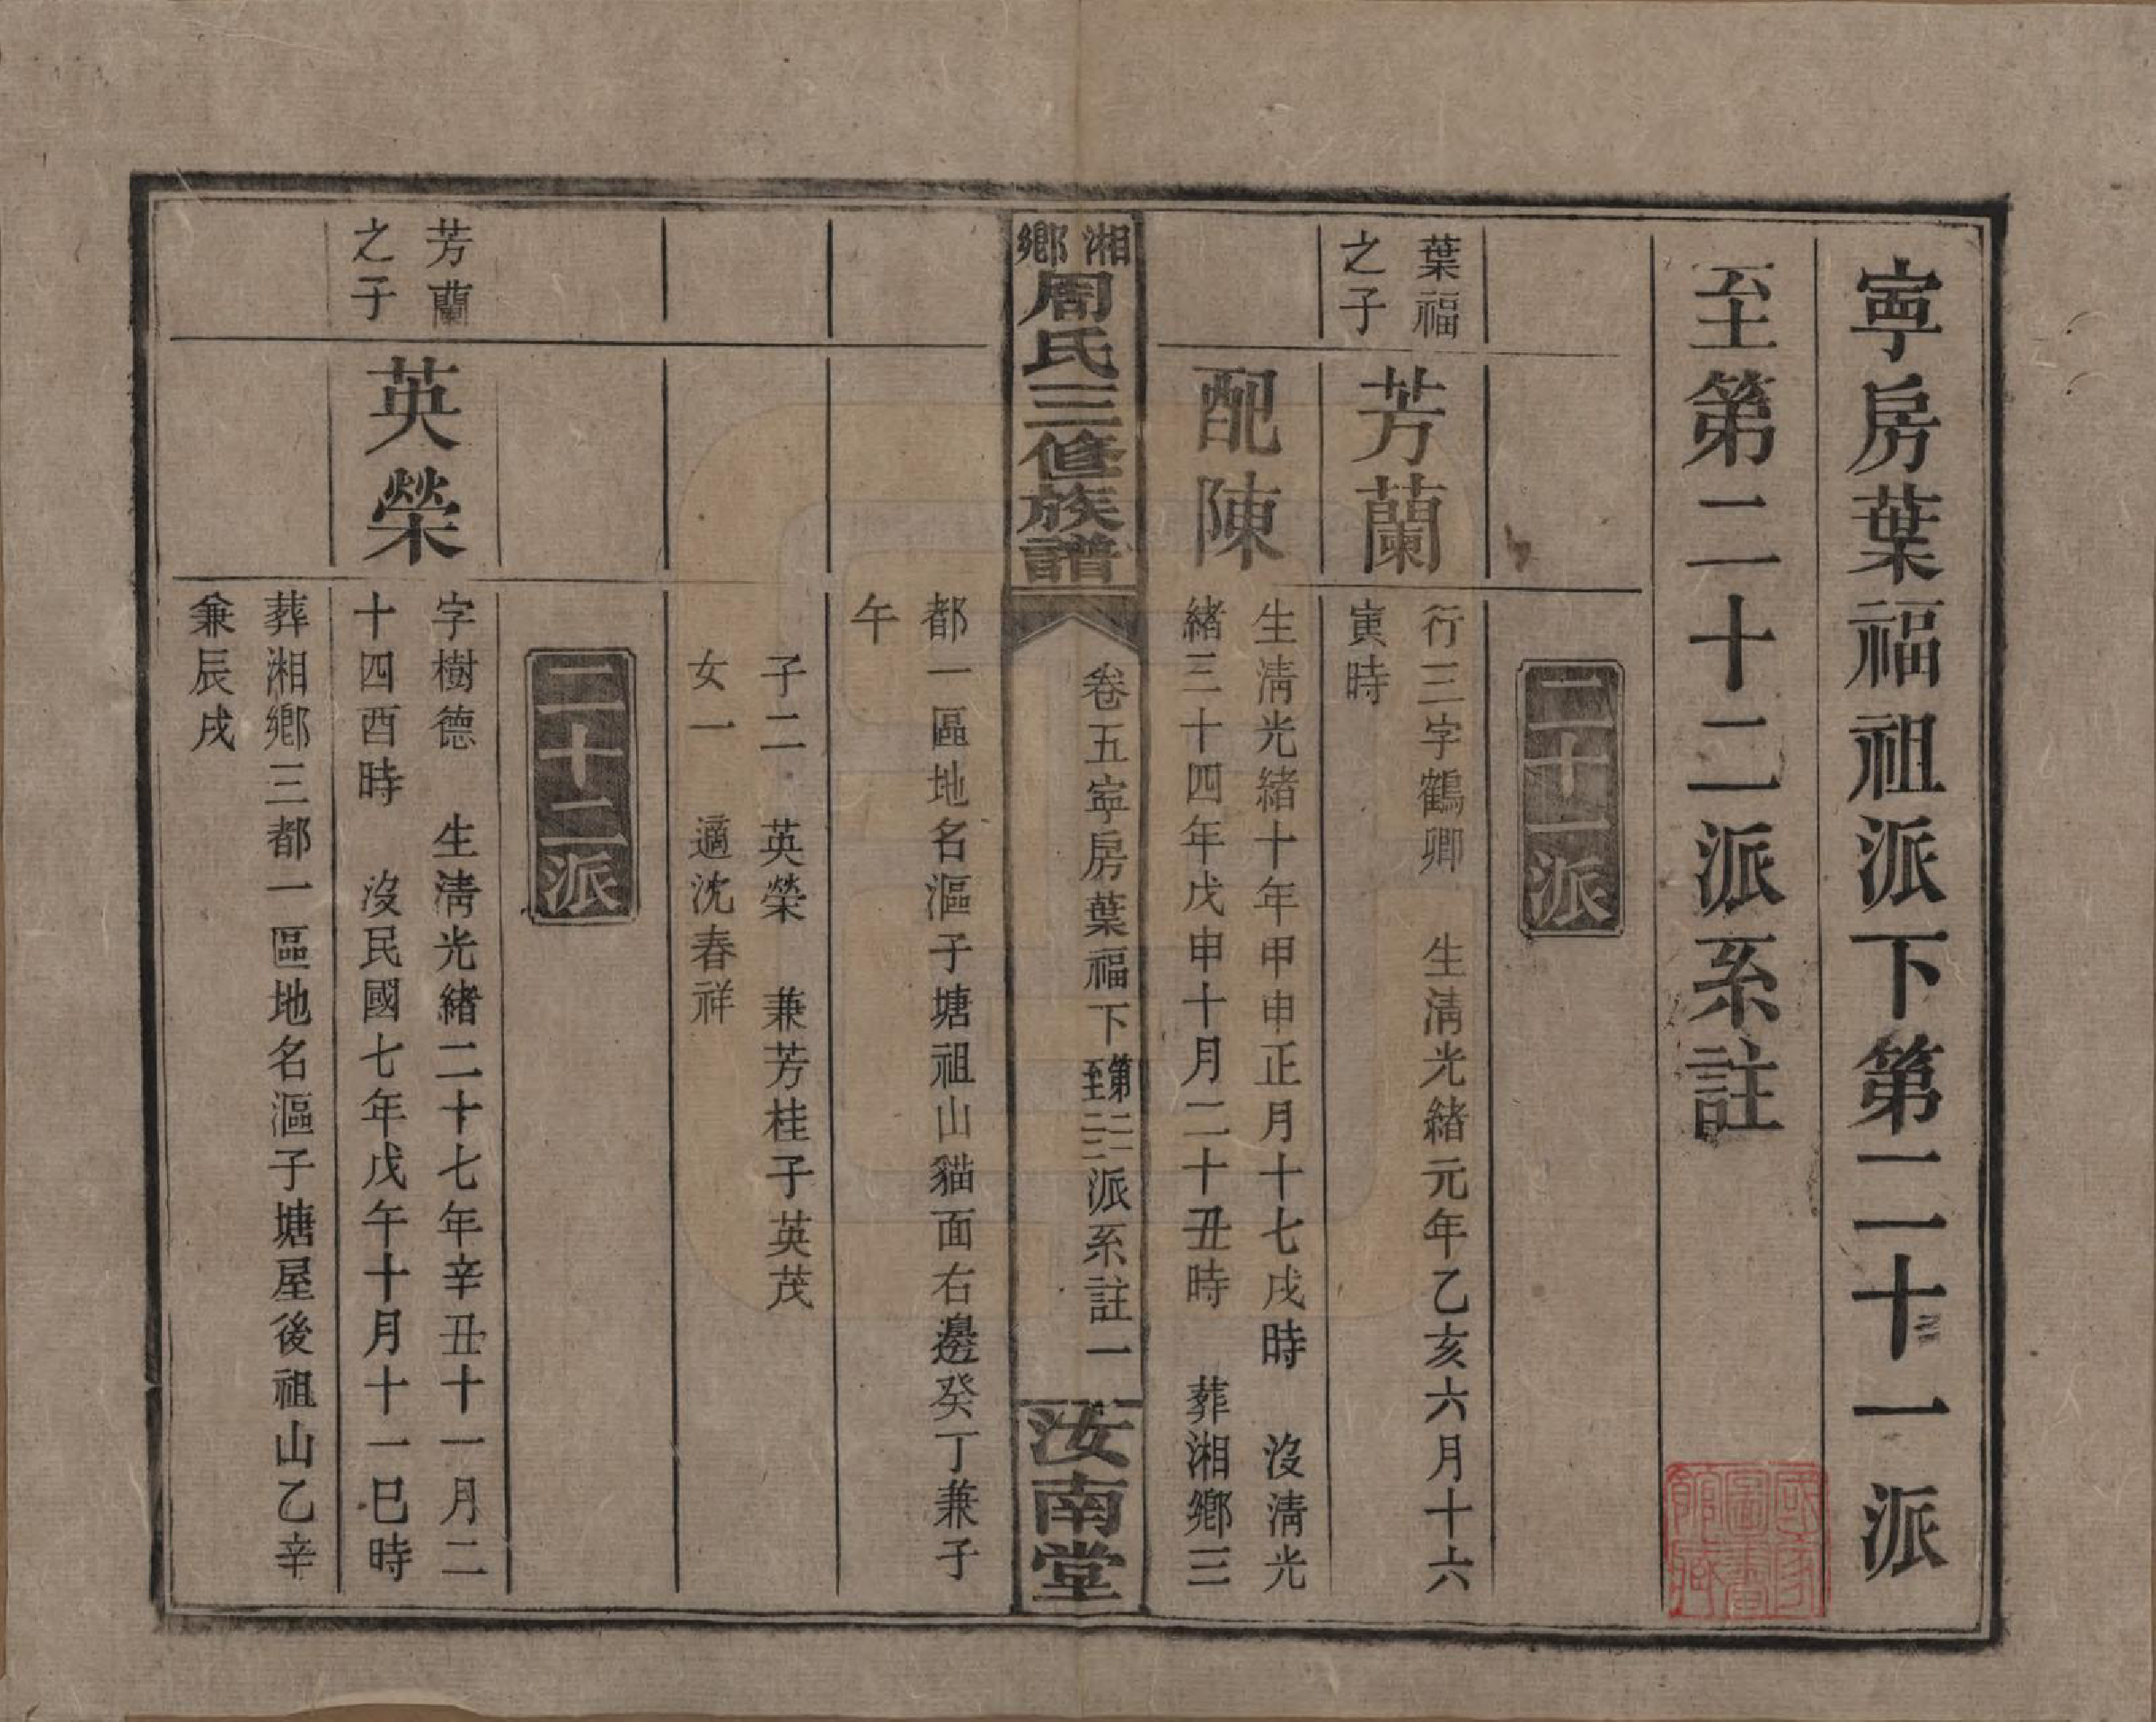 寕房葉福祖派下第二十一派
至第二十二派系註
二十一派
葉福
之子
芳蘭
行三字鶴卿　生淸光緒元年乙亥六月十六
寅時
配陳
生淸光緒十年甲申正月十七戌時　沒淸光
緒三十四年戊申十月二十丑時　葬湘鄕三
湘鄕
周氏三修族譜
卷五寕房葉福下
第二一
至二二
派系註一
汝南堂
都一區地名漚子塘祖山貓面右邊癸丁兼子
午
子二　英榮　兼芳桂子英茂
女一　適沈春祥
二十二派
芳蘭
之子
英榮
字樹德　生淸光緒二十七年辛丑十一月二
十四酉時　沒民國七年戊午十月十一巳時
葬湘鄕三都一區地名漚子塘屋後祖山乙辛
兼辰戌
國家
圖書
館藏